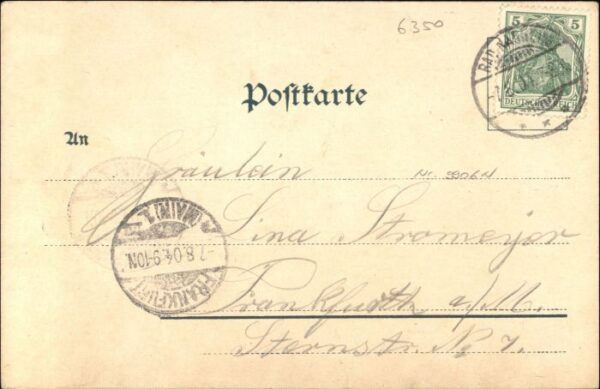 6350
5 5
DEUTSCHES REICH
BAD NAU
Postkarte
An
Fräulein
Nr. 3306N
Lina Stromeyer
FRANKFURT (MAIN) 1.
7.8.04. 9-10N.
Frankfurth a/M.
Sternstr. No 7.